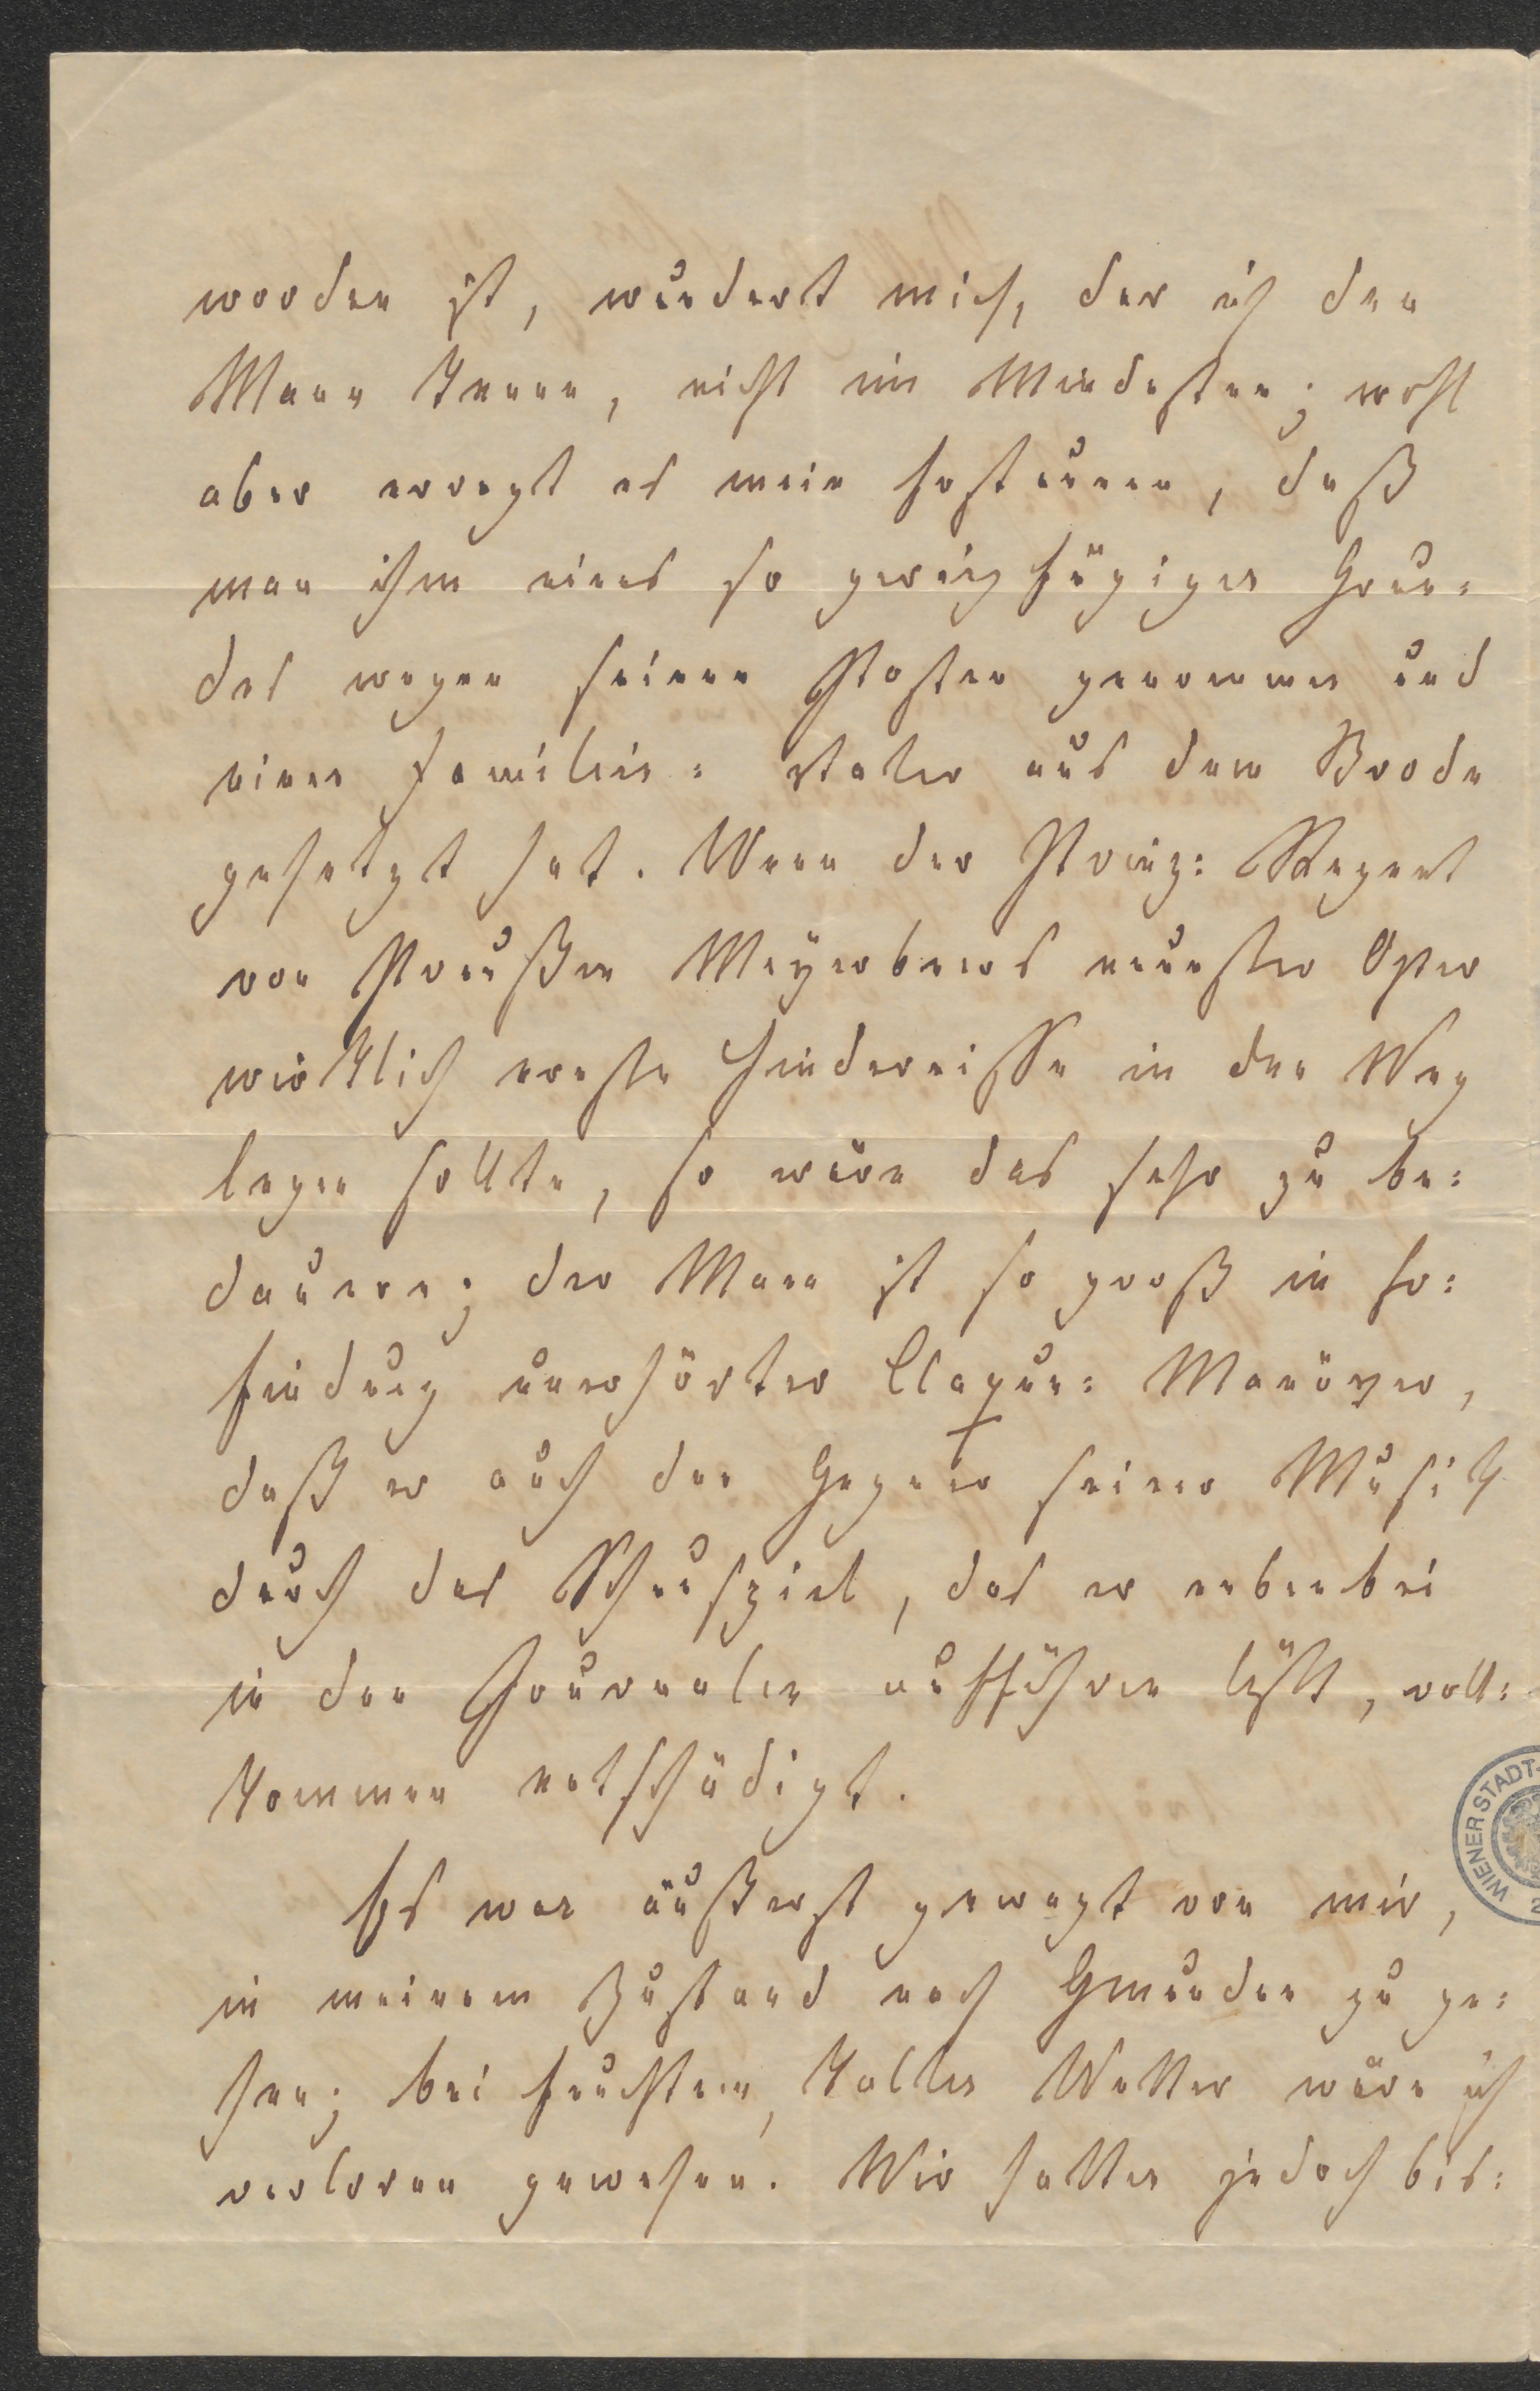 worden ist, wundert mich, der ich den
Mann kenne, nicht im Mindesten; wohl
aber erregt es mein Erstaunen, daß
man ihm eines so geringfügigen Grun=
des wegen seinen Posten genommen und
einen Familien= Vater aus dem Brode
gesetzt hat. Wenn der Prinz= Regent
von Preußen Meyerbeers neuester Oper
wirklich ernste Hindernisse in den Weg
legen sollte, so wäre das sehr zu be=
dauern; der Mann ist so groß in Er=
findung unerhörter Claquen= Manöver,
daß er auch den Gegner seiner Musik
durch das Schauspiel, das er nebenbei
in den Journalen aufführen läßt, voll=
kommen entschädigt.
Es war äußerst gewagt von mir,
in meinem Zustand nach Gmunden zu ge=
hen; bei feuchtem, kalten Wetter wäre ich
verloren gewesen. Wir hatten jedoch bis=
WIENER STADT-
2